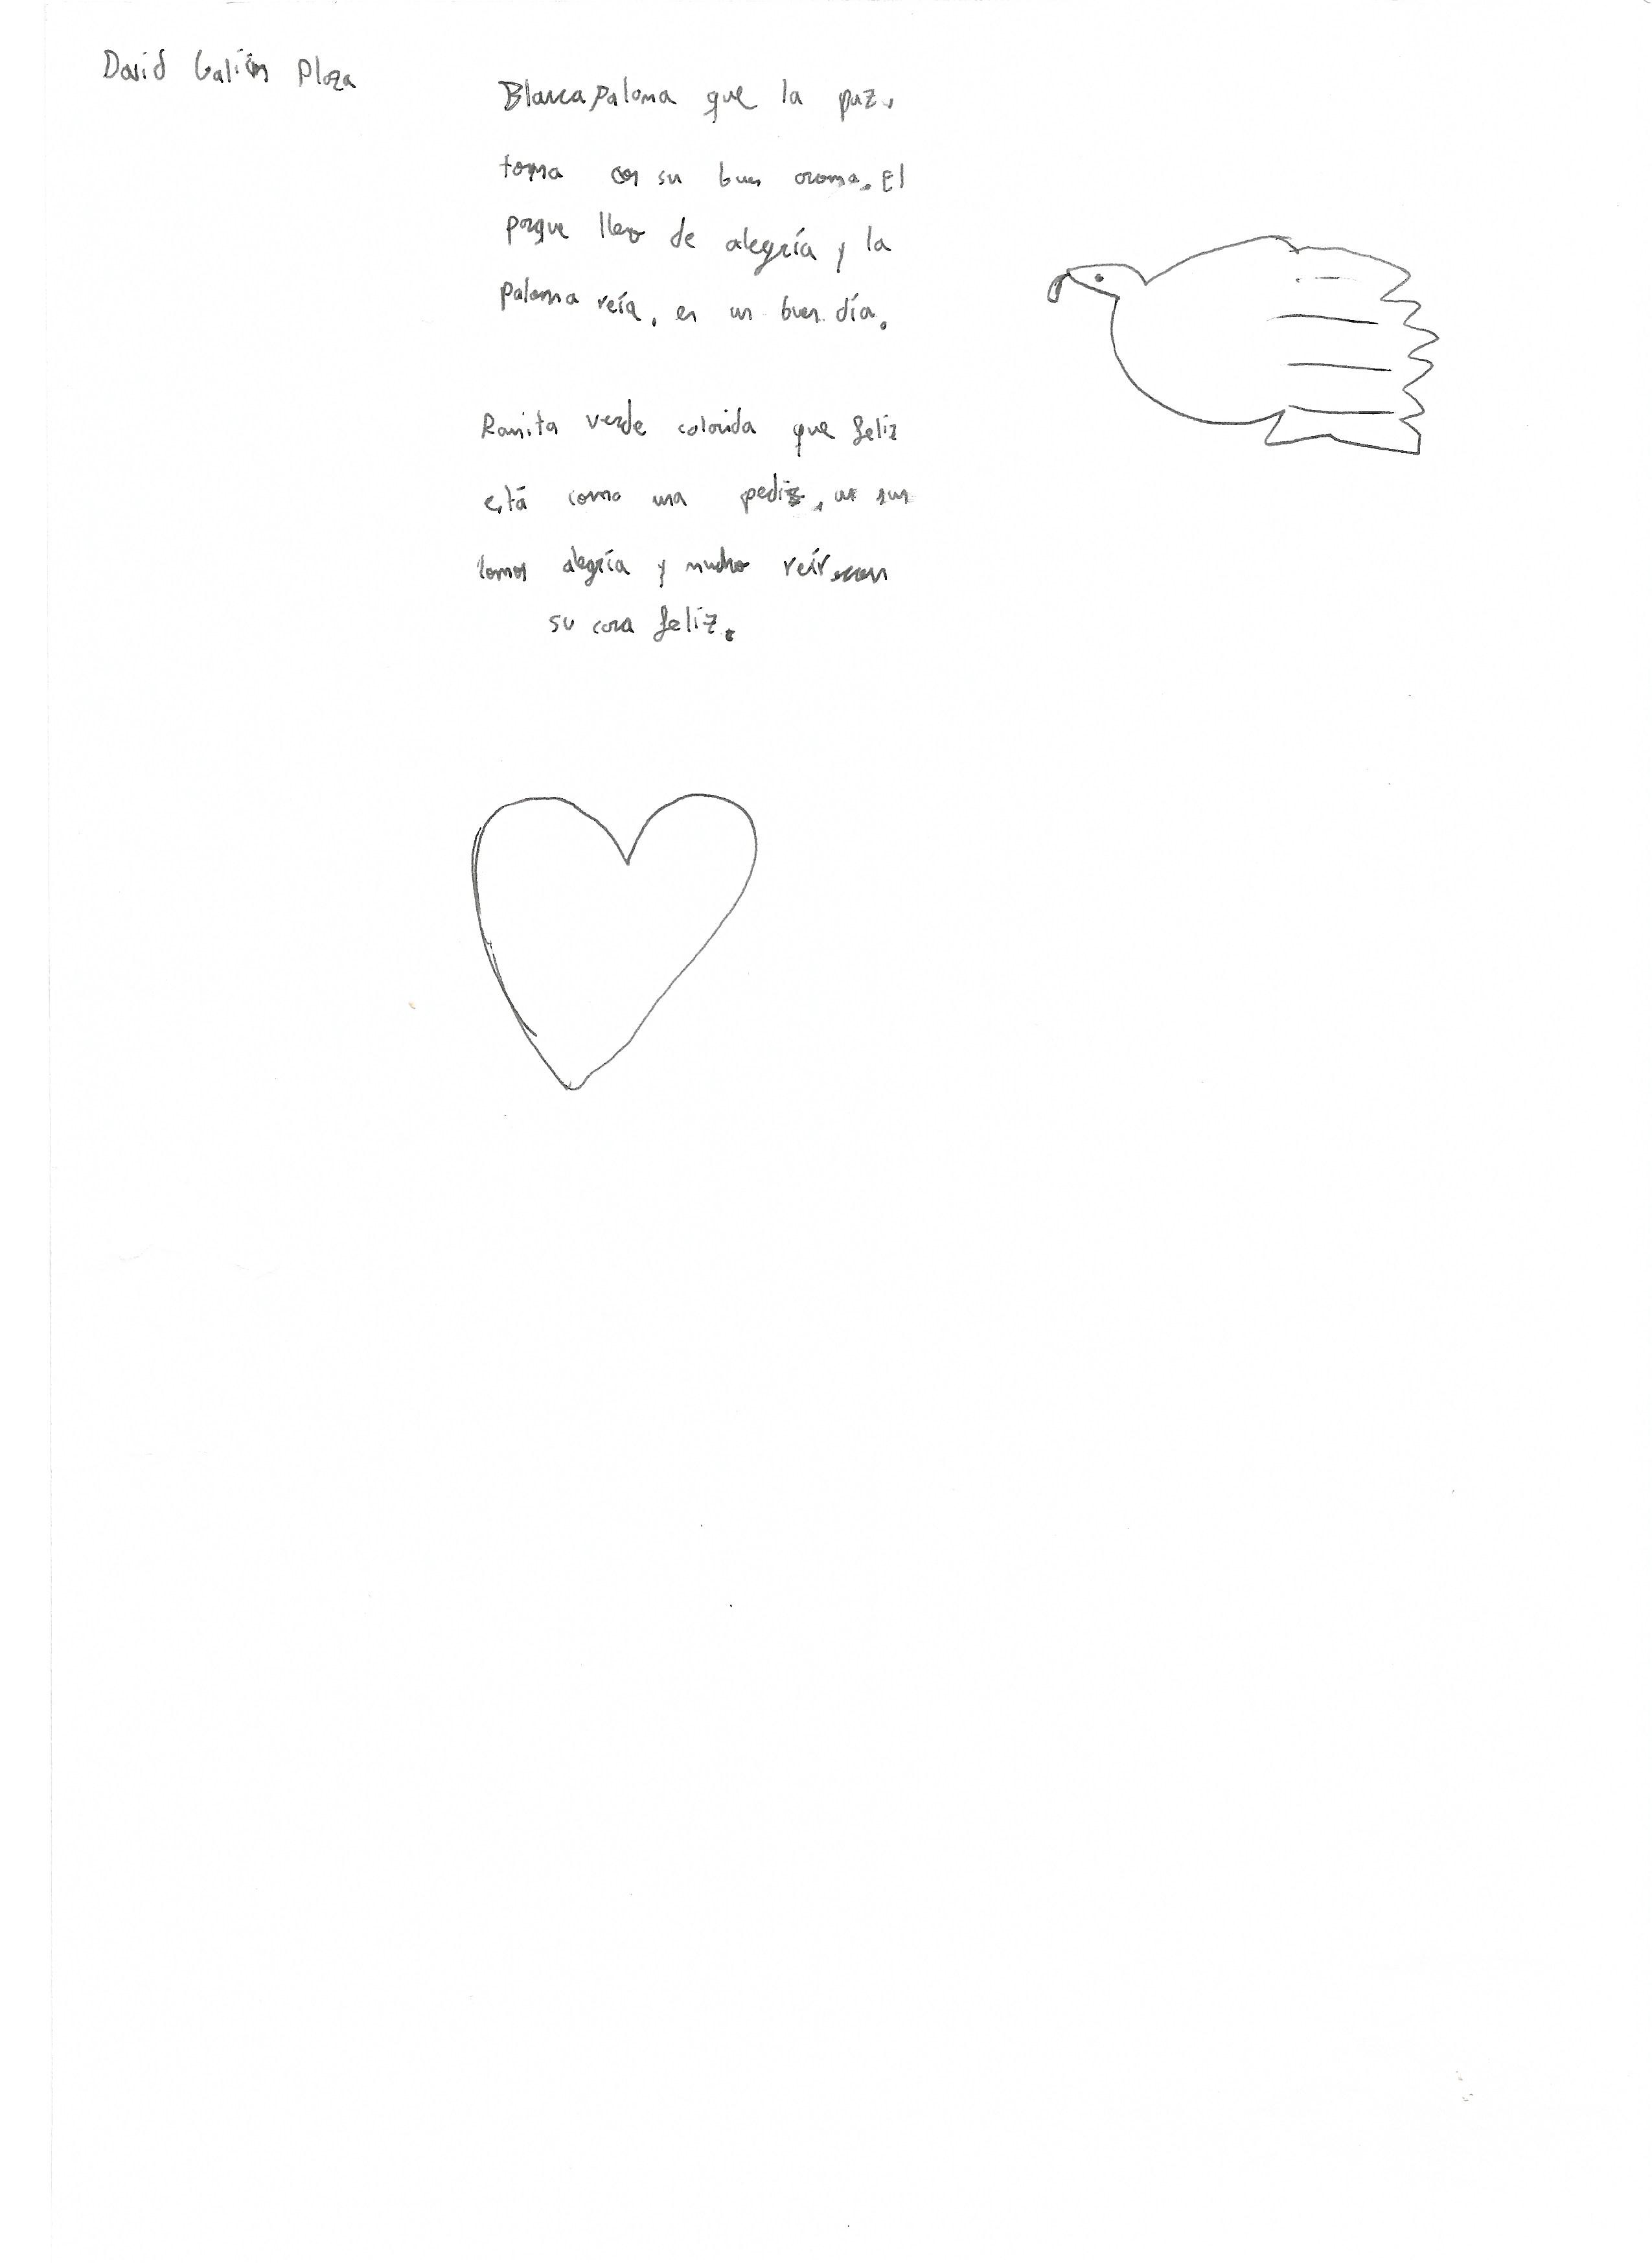 David Galián Plaza
Blanca paloma que la paz,
toma con su buen aroma. El
parque lleno de alegría y la
paloma reía, en un buen día.
Ranita verde colorida que feliz
está como una pediz,
lomos alegría y mucho reír
su cara feliz.